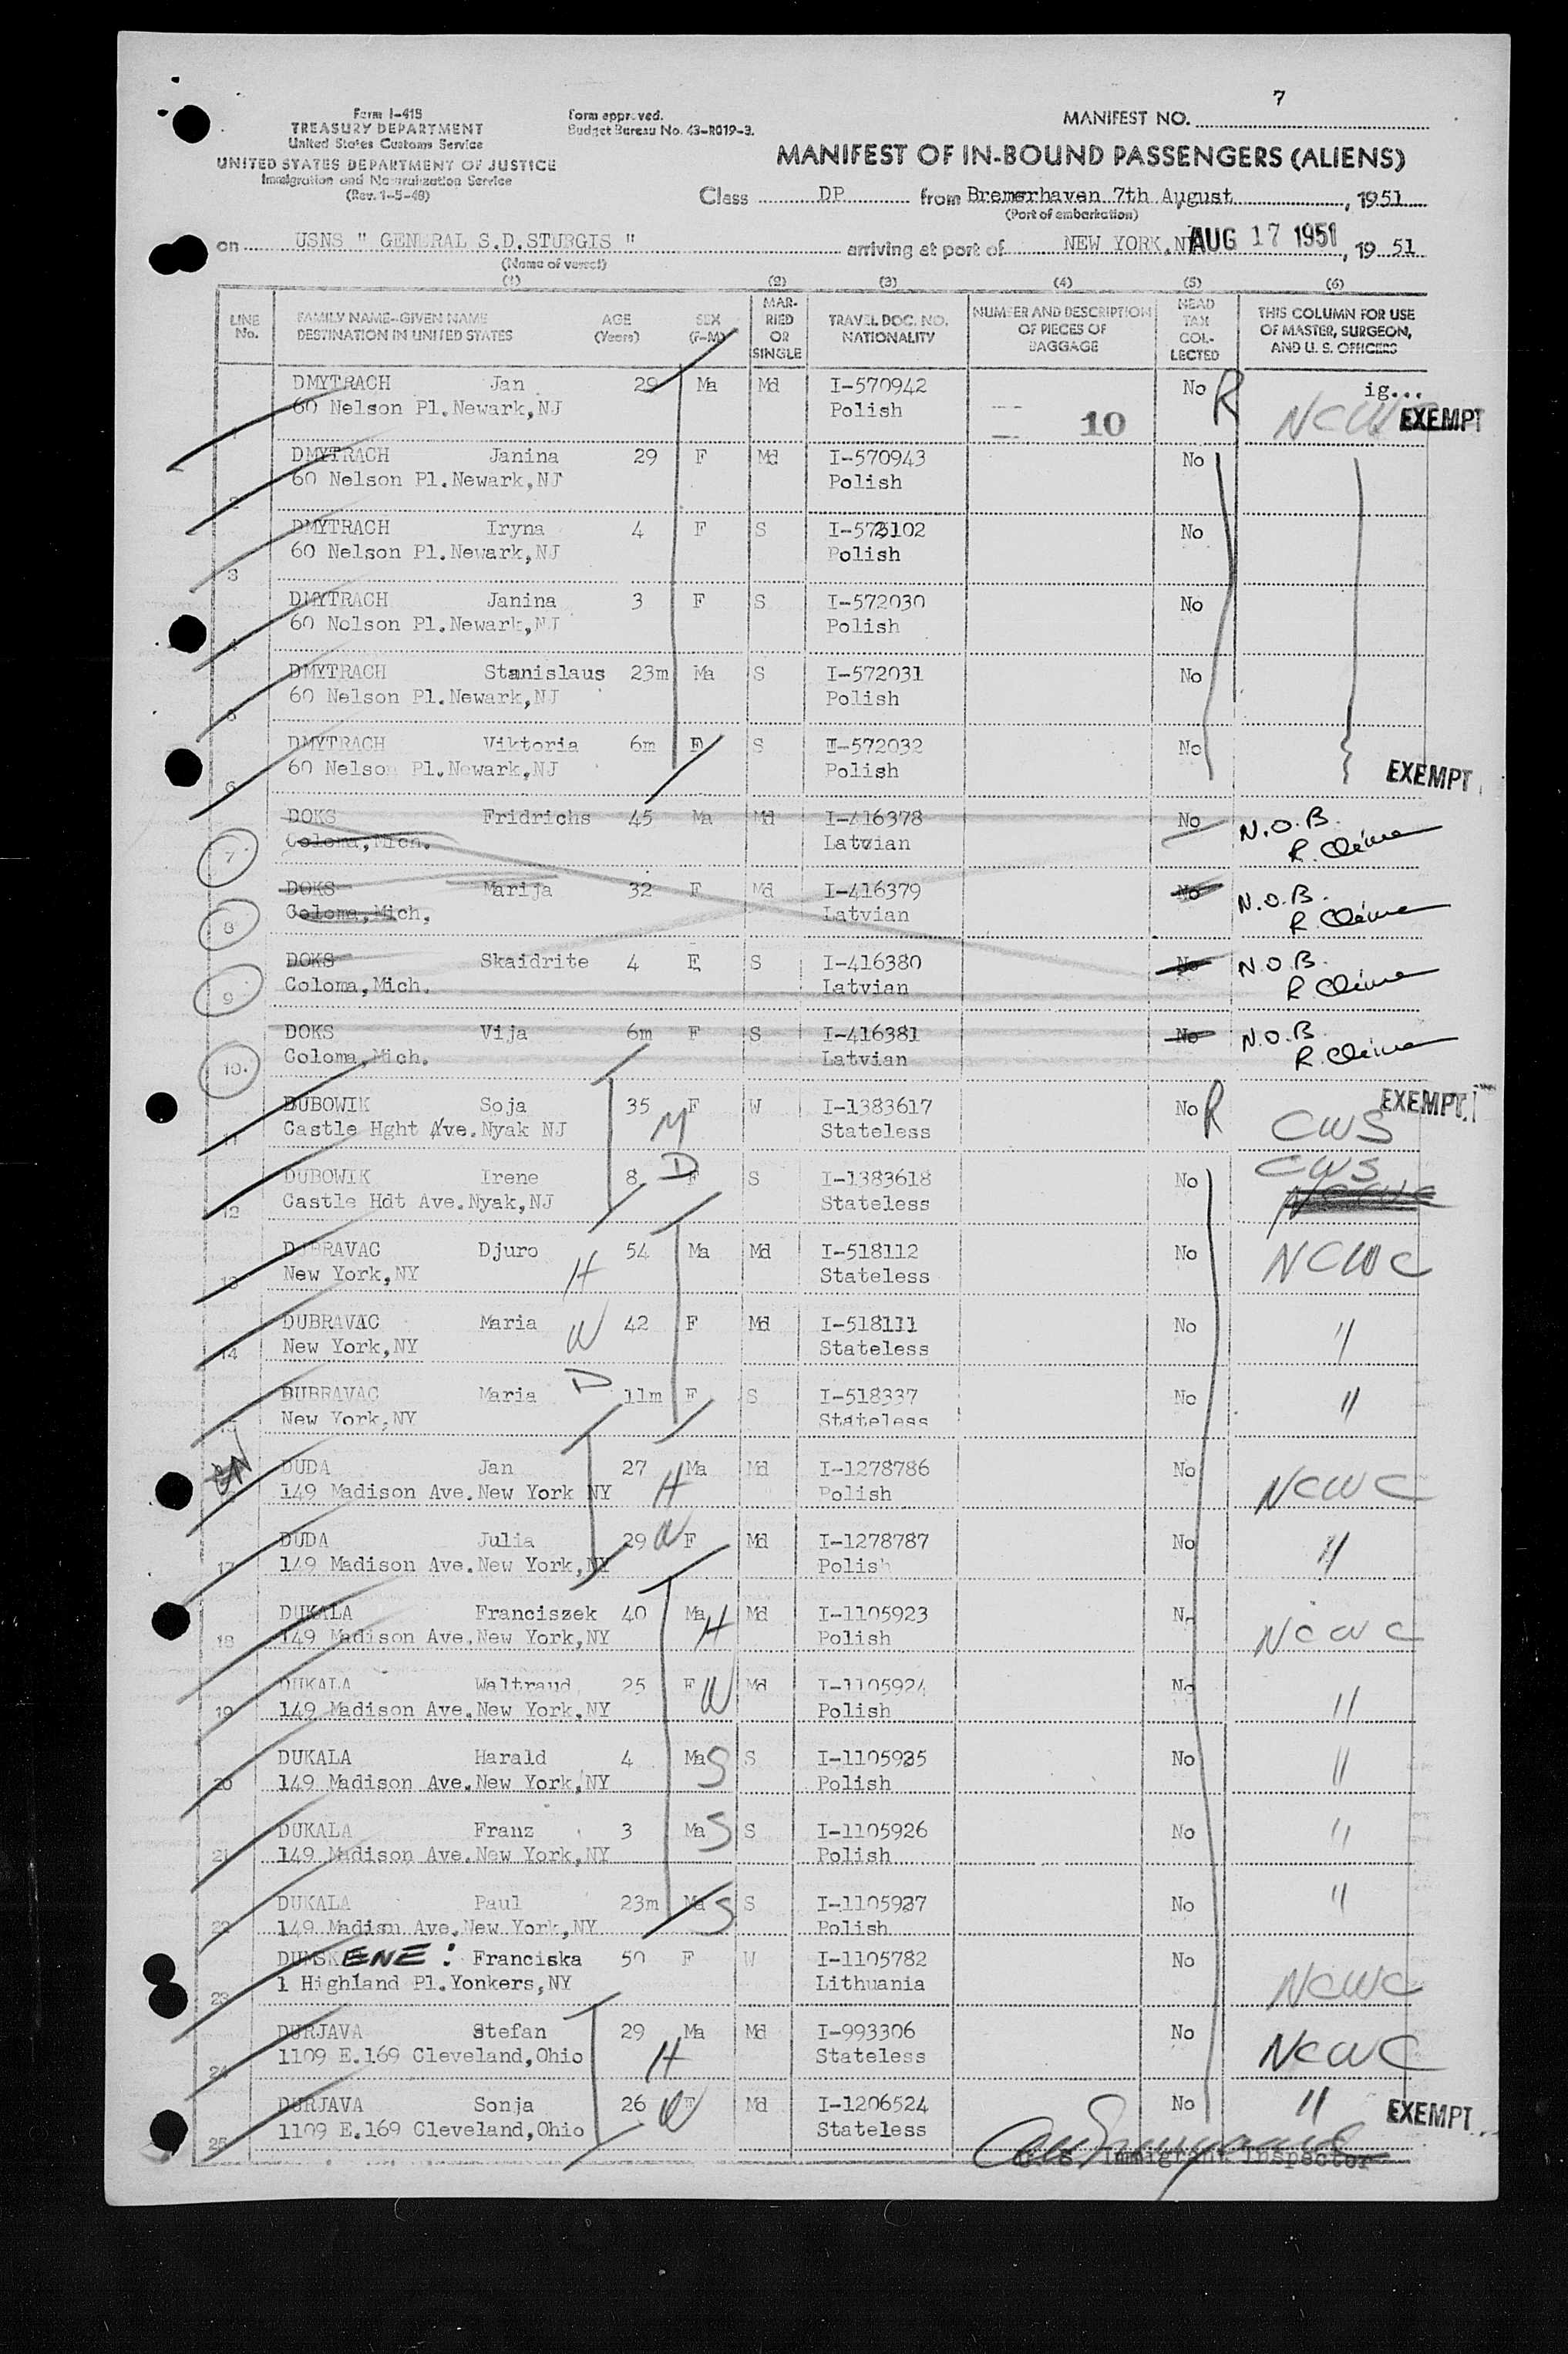 7
Form I-418
TREASURY DEPARTMENT
United States Customs Service
UNITED STATES DEPARTMENT OF JUSTICE
Immigration and Naturalization Service
(Rev. 1-5-49)
Form approved.
Budget Bureau No. 43-R019-3.
MANIFEST NO.
MANIFEST OF IN-BOUND PASSENGERS (ALIENS)
Class DP from Bremerhaven 7th August, 1951
(Port of embarkation)
on USNS " GENERAL S.D.STURGIS " arriving at port of NEW YORK,NY AUG 17 1951, 19 51
(Name of vessel)
(1) (2) (3) (4) (5) (6)
LINE No. FAMILY NAME--GIVEN NAME DESTINATION IN UNITED STATES AGE (Years) SEX (F-M) MARRIED OR SINGLE TRAVEL DOC. NO. NATIONALITY NUMBER AND DESCRIPTION OF PIECES OF BAGGAGE HEAD TAX COLLECTED THIS COLUMN FOR USE OF MASTER, SURGEON, AND U. S. OFFICERS
DMYTRACH Jan 29 Ma Md I-570942 No R ig...
1 60 Nelson Pl.Newark,NJ Polish 10 NCWC EXEMPT
DMYTRACH Janina 29 F Md I-570943 No
2 60 Nelson Pl.Newark,NJ Polish
DMYTRACH Iryna 4 F S No
3 60 Nelson Pl.Newark,NJ Polish
DMYTRACH Janina 3 F S I-572030 No
4 60 Nelson Pl.Newark,NJ Polish
DMYTRACH Stanislaus 23m Ma S I-572031 No
5 60 Nelson Pl.Newark,NJ Polish
DMYTRACH Viktoria 6m F S I-572032 No
6 60 Nelson Pl.Newark,NJ Polish EXEMPT
DOKS Fridrichs 45 Ma Md I-416378 No N.O.B.
7 Coloma,Mich. Latvian
DOKS Marija 32 F Md I-416379 No N.O.B.
8 Coloma,Mich, Latvian
DOKS Skaidrite 4 F S I-416380 No N.O.B.
9 Coloma,Mich. Latvian
DOKS Vija 6m F S I-416381 No N.O.B.
10. Coloma,Mich. Latvian
DUBOWIK Soja 35 F W I-1383617 No R EXEMPT
11 Castle Hght Ave.Nyak NJ M Stateless CWS
DUBOWIK Irene 8 D F S I-1383618 No CWS
12 Castle Hdt Ave.Nyak,NJ Stateless
DUBRAVAC Djuro 54 Ma Md I-518112 No NCWC
13 New York,NY H Stateless
DUBRAVAC Maria 42 F Md I-518111 No "
14 New York,NY W Stateless
DUBRAVAC Maria D 11m F S I-518337 No "
New York,NY Stateless
DUDA Jan 27 H Ma Md I-1278786 No NCWC
149 Madison Ave.New York NY Polish
DUDA Julia 29 W F Md I-1278787 No "
17 149 Madison Ave.New York,NY Polish
DUKALA Franciszek 40 Ma H Md I-1105923 No NCWC
18 149 Madison Ave.New York,NY Polish
DUKALA Waltraud 25 F W Md I-1105924 No "
19 149 Madison Ave.New York,NY Polish
DUKALA Harald 4 Ma S S I-1105925 No "
20 149 Madison Ave.New York,NY Polish
DUKALA Franz 3 Ma S S I-1105926 No "
21 149 Madison Ave.New York,NY Polish
DUKALA Paul 23m Ma S S I-1105927 No "
22 149 Madisn Ave.New York,NY Polish
DUMSKENE: Franciska 50 F W I-1105782 No
23 1 Highland Pl.Yonkers,NY Lithuania NCWC
DURJAVA Stefan 29 Ma Md I-993306 No NCWC
24 1109 E.169 Cleveland,Ohio H Stateless
DURJAVA Sonja 26 W F Md I-1206524 No " EXEMPT
25 1109 E.169 Cleveland,Ohio Stateless
U.S Immigrant Inspector